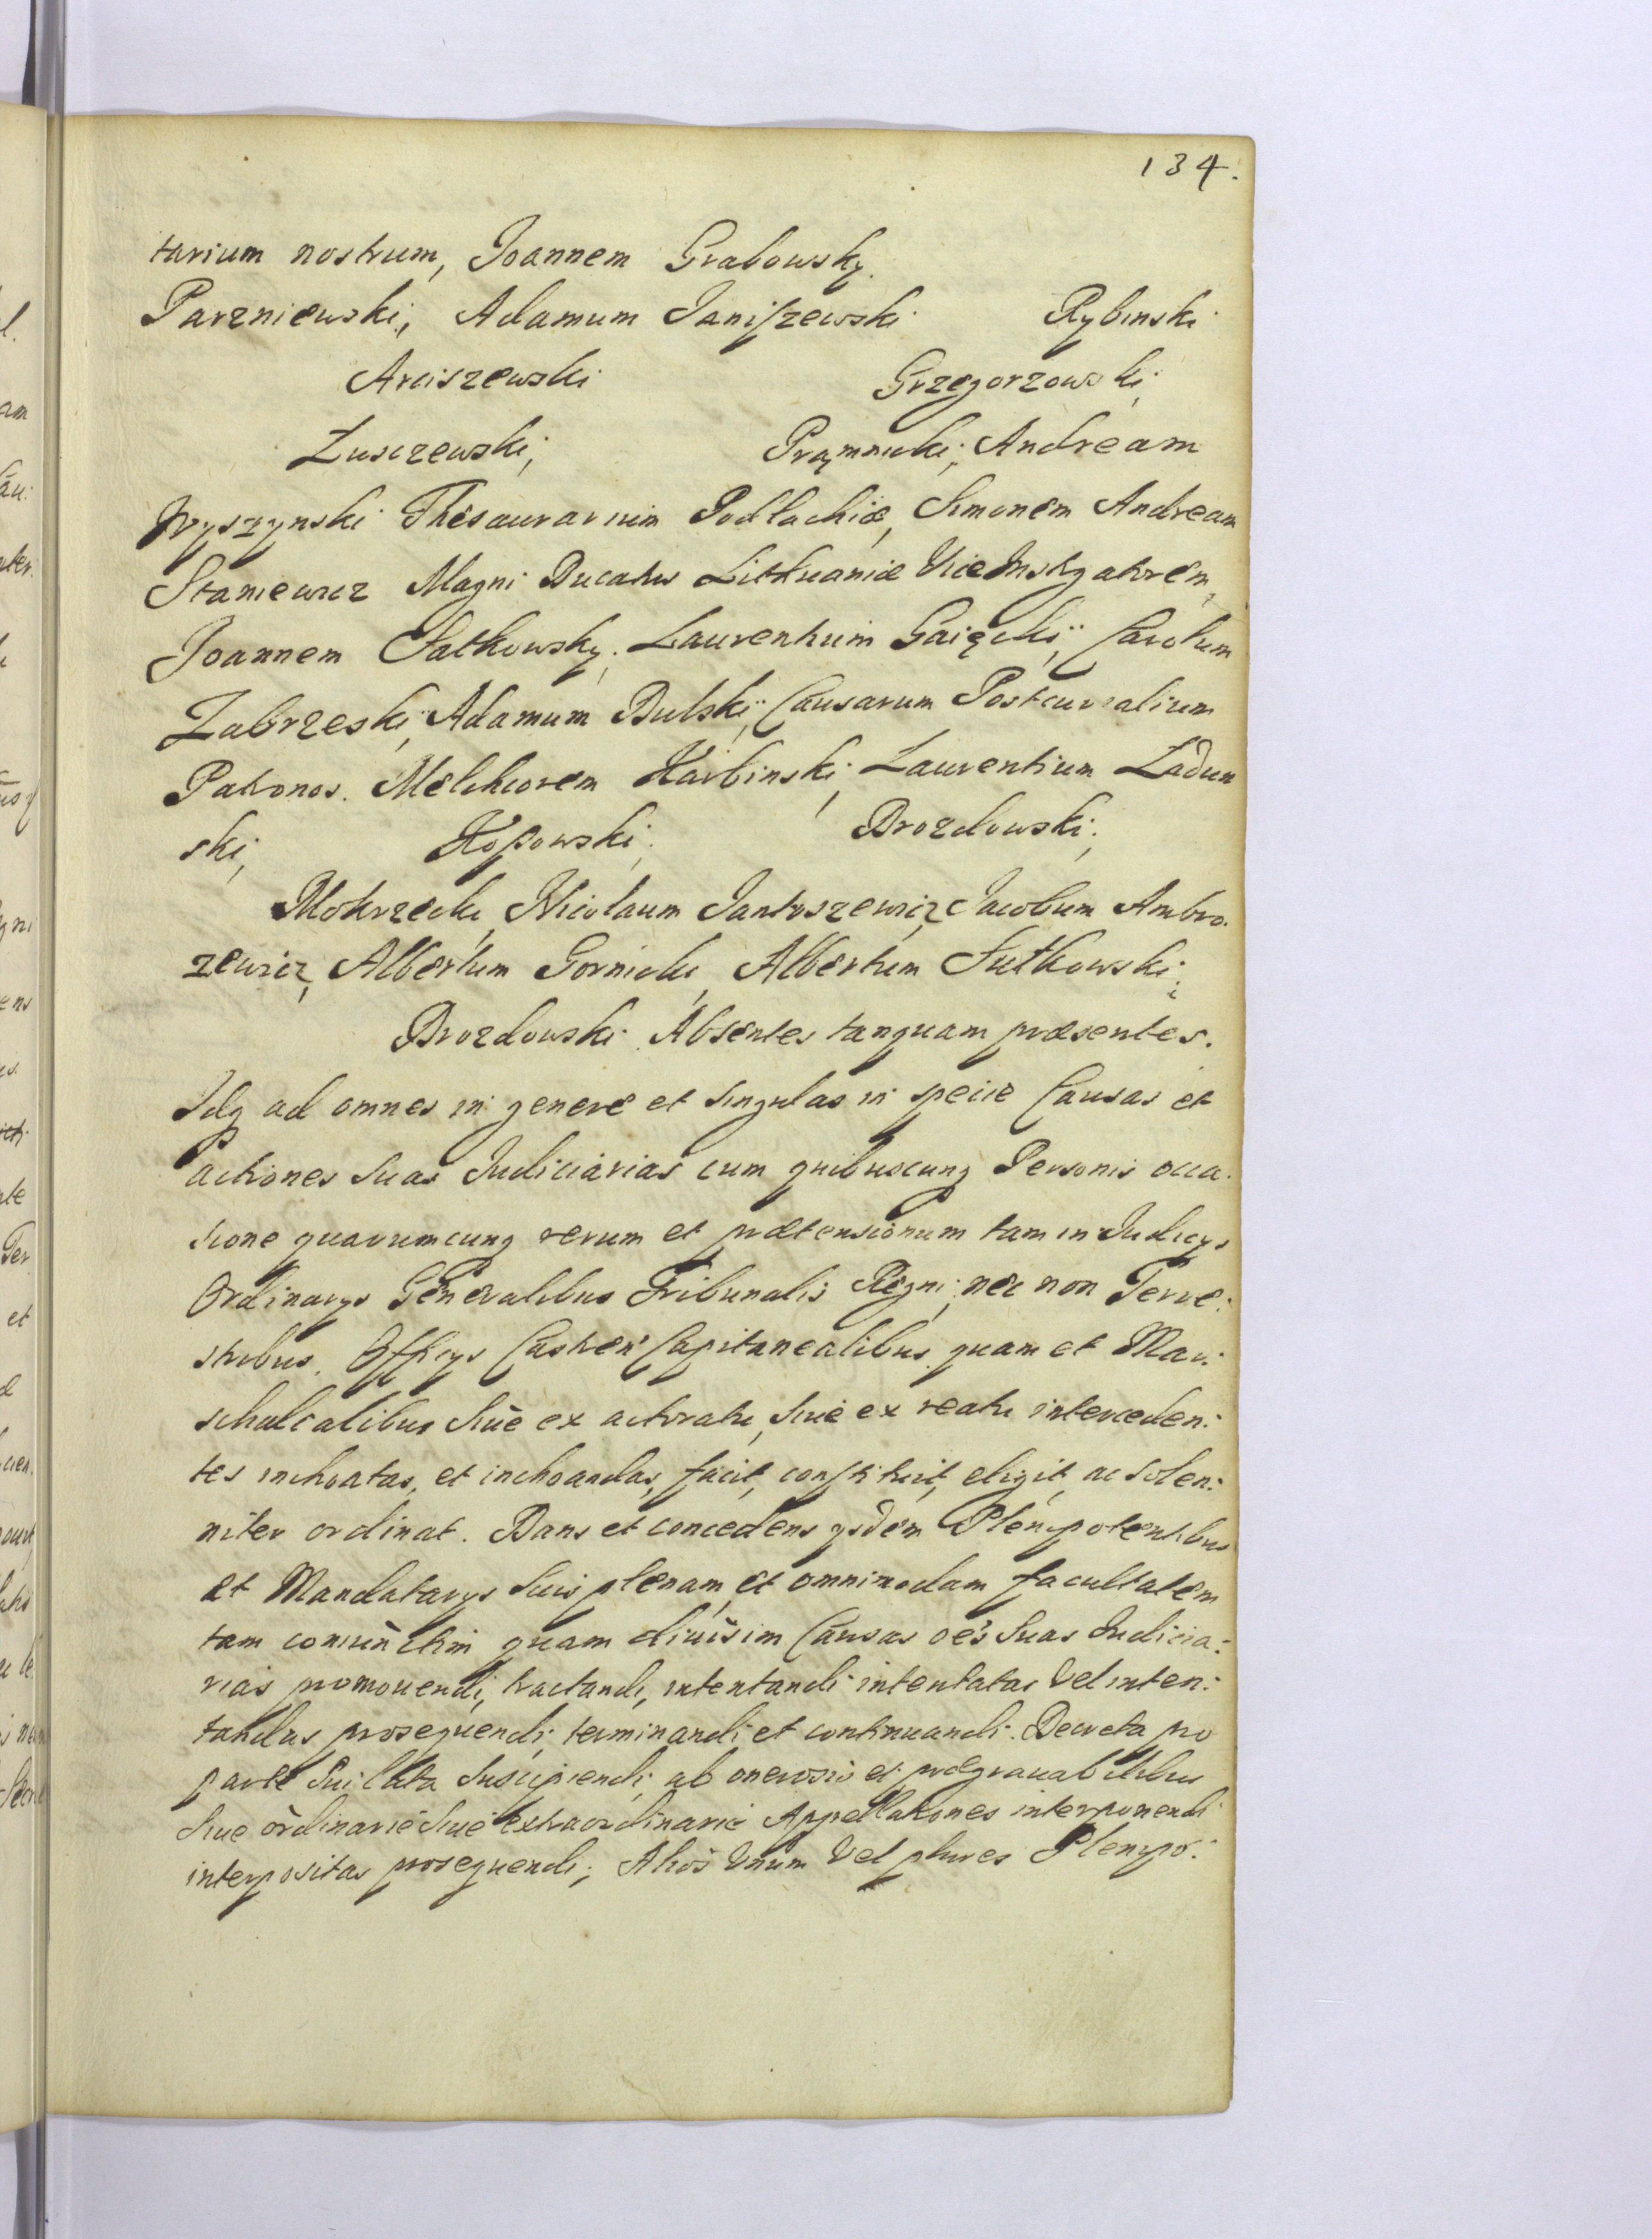 134.
tarium nostrum, Joannem Grabowsky.
Parzniewski, Adamum Janiszewski Rybinski
Arciszewski Grzegorzowski,
Lusczewski, Prąmnicki, Andream
Wyszynski Thesaurarium Podlachiæ, Simonem Andream
Staniewicz Magni Ducatus Lithuaniæ ViceInstigatorem,
Joannem Jatkowsky, Laurentium Gaięckÿ, Carolum
Zabrzeski, Adamum Bulski, Causarum Postcurialium
Patronos. Melchiorem Karbinski, Laurentium Ladun
ski, Kopowski, Drozdowski,
Mokrzecki, Nicolaum Jantoszewicz, Jacobum Ambro:
zewicz, Albertum Gornicki, Albertum Sutkowski;
Drozdowski. Absentes tanquam præsentes.
Idq ad omnes in genere et singulas in specie Causas et
actiones Suas Judiciarias cum quibuscunq Personis occa:
sione quarumcunq rerum et prætensionum tam in Judicys
Ordinarys Generalibus Tribunalis Regni, nec non Terre:
stribus, Officys Castren Capitanealibus quam et Mar:
schalcalibus Siue ex actoratu, Siue ex reatu interceden:
tes inchoatas, et inchoandas, facit, constituit, eligit, ac Solen:
niter ordinat. Dans et concedens ysdem Plenipotentibus
et Mandatarys Suis plenam, et omnimodam facultatem
tam coniunctim quam diuisim Causas oes Suas Judicia:
rias promouendi, tractandi, intentandi intentatas Vel inten:
tandas prosequendi, terminandi et continuandi. Decreta pro
parte Sui lata Suscipiendi, ab onerosis et prægrauabilibus
Siue ordinarie Siue extraordinarie Appellationes interponendi
interpositas prosequendi, Alios Vnum Vel plures Plenipo: